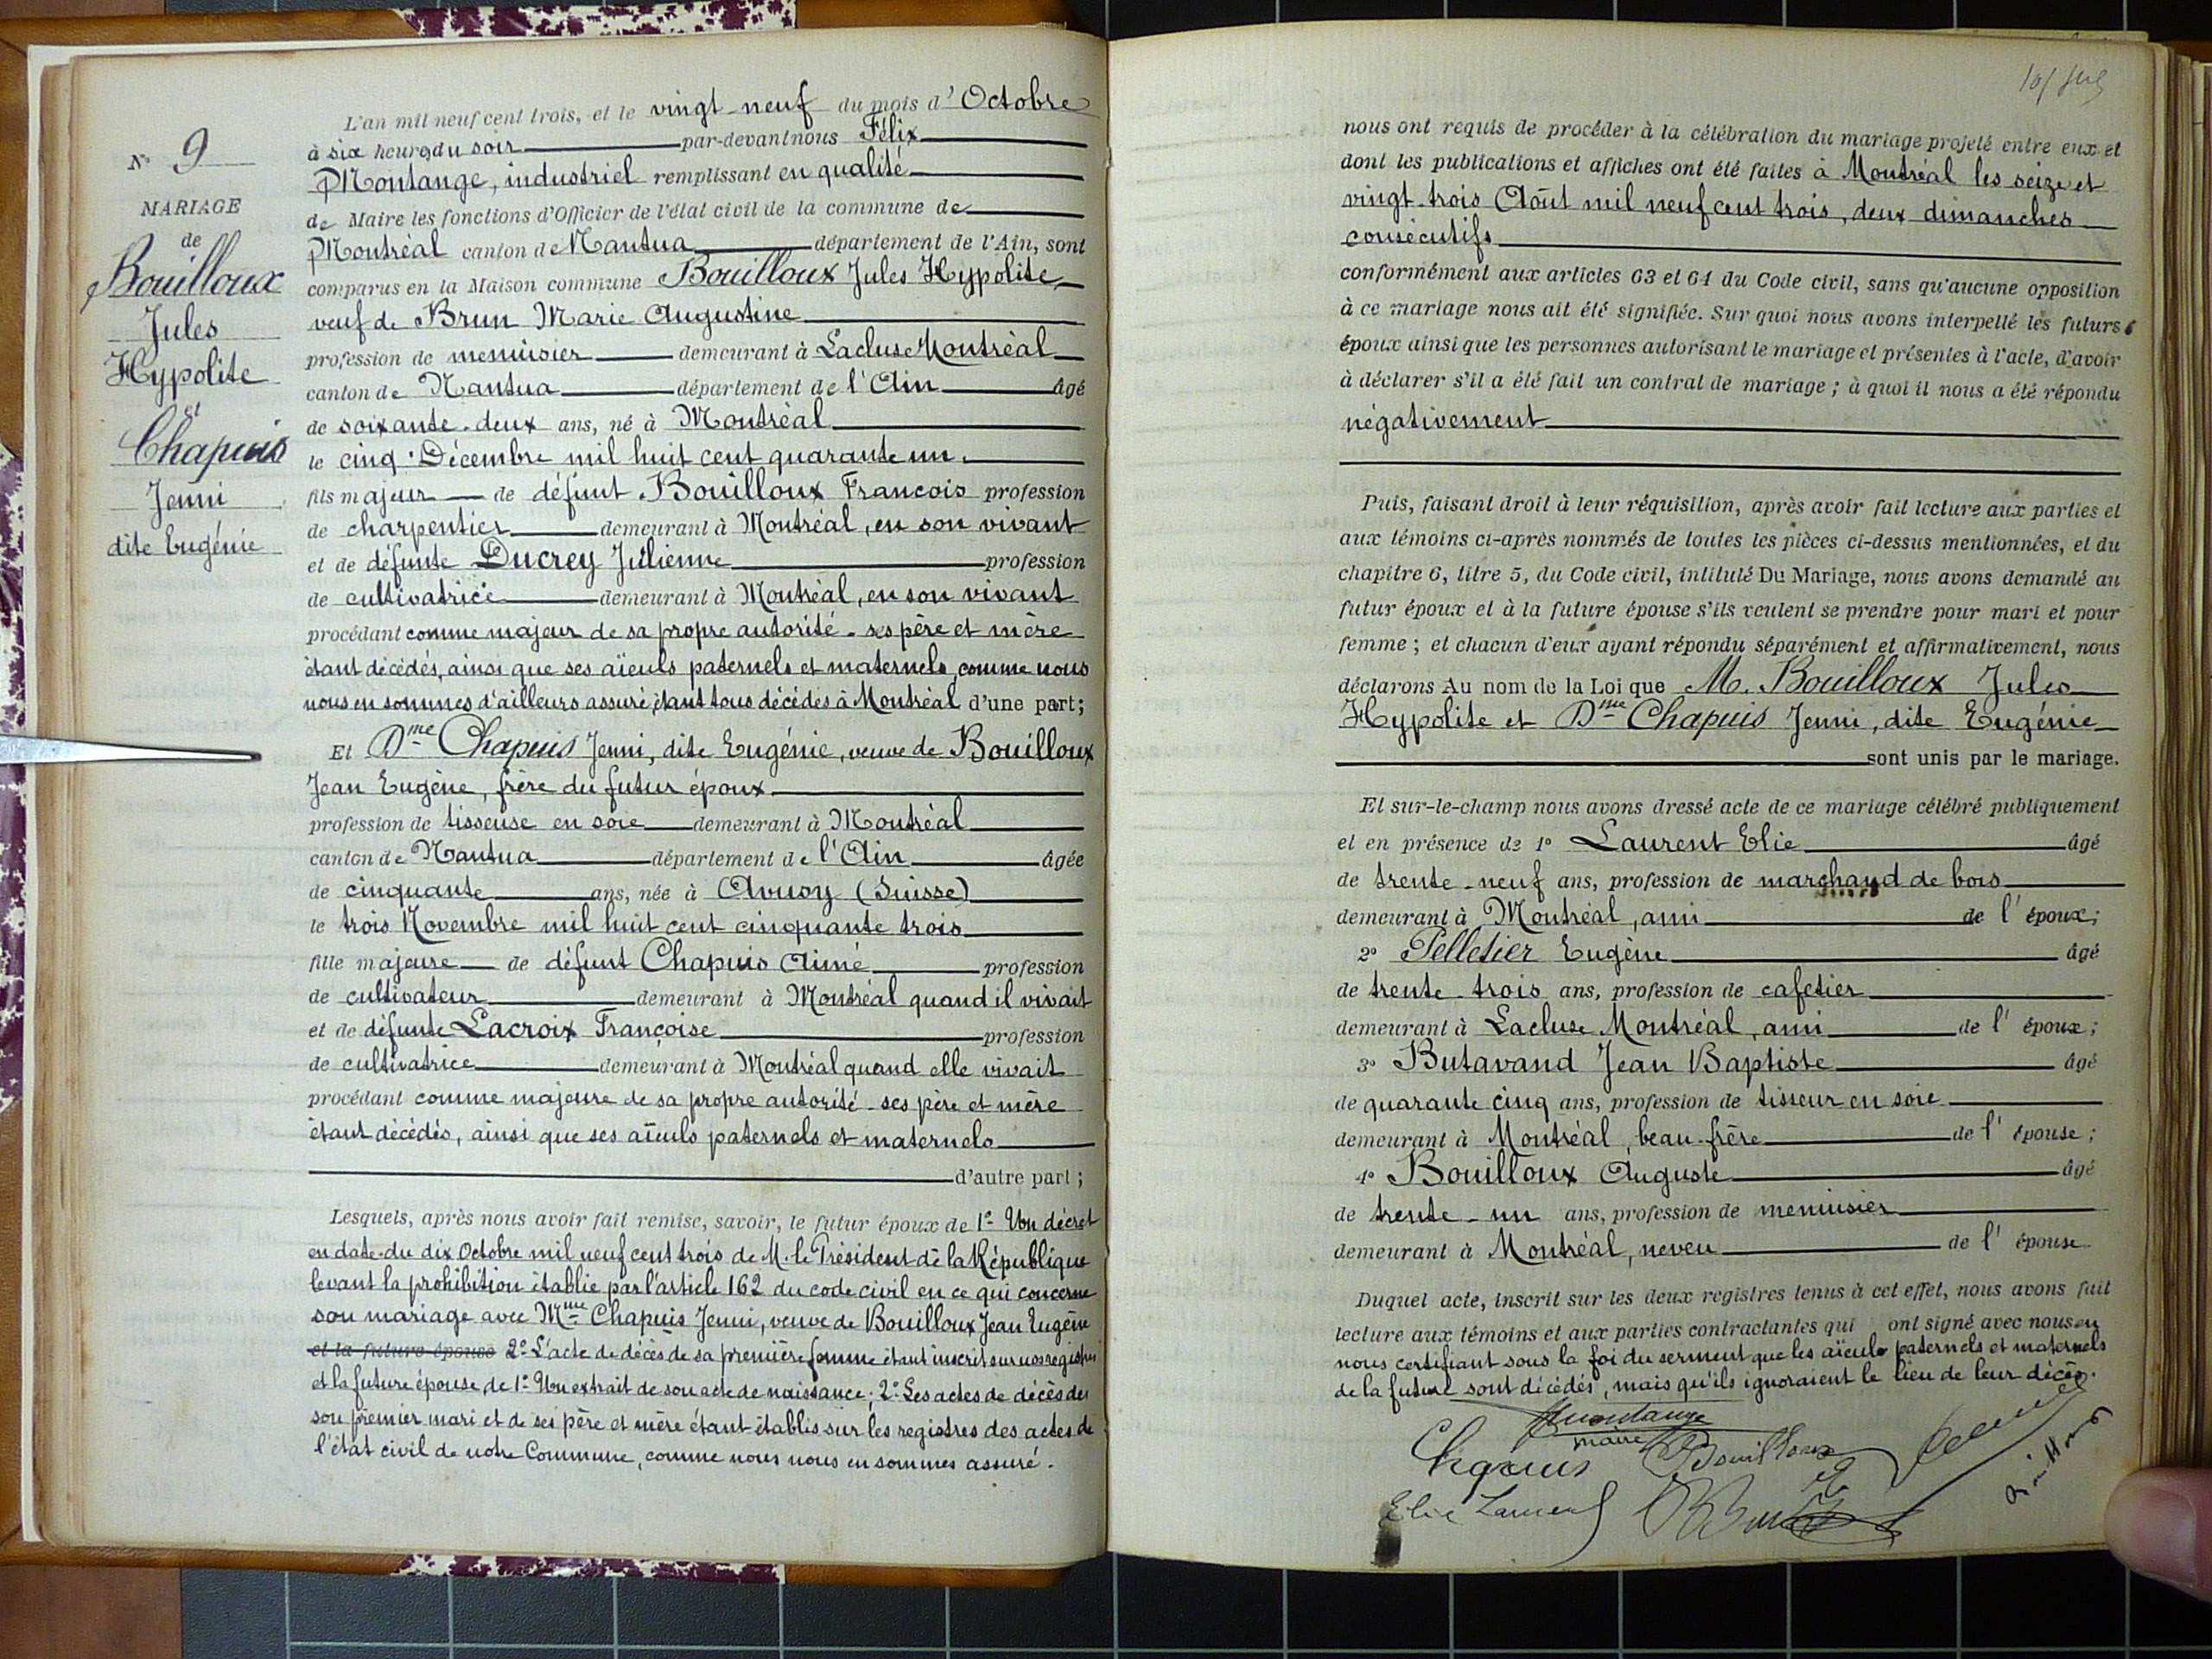 N° 9
MARIAGE
de
Bouilloux
Jules
Hypolite
et
Chapuis
Jenni
dite Eugénie
L'an mil neuf cent trois, et le vingt-neuf du mois d'Octobre
à six heures du soir par-devant nous Félix
Montange, industriel remplissant en qualité
de Maire les fonctions d'Officier de l'état civil de la commune de
Montréal canton de Nantua département de l'Ain, sont
comparus en la Maison commune Bouilloux Jules Hypolite,
veuf de Brun Marie Augustine
profession de menuisier demeurant à Lacluse Montréal
canton de Nantua département de l'Ain âgé
de soixante-deux ans, né à Montréal
le cinq Décembre mil huit cent quarante un.
fils majeur de défunt Bouilloux Francois profession
de charpentier demeurant à Montréal, en son vivant
et de défunte Ducrey Julienne profession
de cultivatrice demeurant à Montréal, en son vivant
procédant comme majeur de sa propre autorité - ses père et mère
étant décédés, ainsi que ses aïeuls paternels et maternels, comme nous
nous en sommes d'ailleurs assuré, étant tous décédés à Montréal d'une part;
Et Dme Chapuis Jenni, dite Eugénie, veuve de Bouilloux
Jean Eugène, frère du futur époux
profession de tisseuse en soie demeurant à Montréal
canton de Nantua département de l'Ain âgée
de cinquante ans, née à (Suisse)
le trois Novembre mil huit cent cinquante trois
fille majeure de défunt Chapuis Aimé profession
de cultivateur demeurant à Montréal quand il vivait
et de défunte Lacroix Françoise profession
de cultivatrice demeurant à Montréal quand elle vivait
procédant comme majeure de sa propre autorité - ses père et mère
étant décédés, ainsi que ses aïeuls paternels et maternels
d'autre part;
Lesquels, après nous avoir fait remise, savoir, le futur époux de 1° Un décret
en date du dix Octobre mil neuf cent trois de M. le Président de la République
levant la prohibition établie par l'article 162 du code civil en ce qui concerne
son mariage avec Mme Chapuis Jenni, veuve de Bouilloux Jean Eugène
et la future épouse 2° L'acte de décès de sa première femme étant inscrit sur nos registres
et la future épouse de 1° Un extrait de son acte de naissance; 2° Les actes de décès de
son premier mari et de ses père et mère étant établis sur les registres des actes de
l'état civil de notre Commune, comme nous nous en sommes assuré.
nous ont requis de procéder à la célébration du mariage projeté entre eux et
dont les publications et affiches ont été faites à Montréal les seize et
vingt-trois Août mil neuf cent trois, deux dimanches
consécutifs
conformément aux articles 63 et 64 du Code civil, sans qu'aucune opposition
à ce mariage nous ait été signifiée. Sur quoi nous avons interpellé les futurs
époux ainsi que les personnes autorisant le mariage et présentes à l'acte, d'avoir
à déclarer s'il a été fait un contrat de mariage; à quoi il nous a été répondu
négativement
Puis, faisant droit à leur réquisition, après avoir fait lecture aux parties et
aux témoins ci-après nommés de toutes les pièces ci-dessus mentionnées, et du
chapitre 6, titre 5, du Code civil, intitulé Du Mariage, nous avons demandé au
futur époux et à la future épouse s'ils veulent se prendre pour mari et pour
femme; et chacun d'eux ayant répondu séparément et affirmativement, nous
déclarons Au nom de la Loi que M. Bouilloux Jules
Hypolite et Dme Chapuis Jenni, dite Eugénie
sont unis par le mariage.
Et sur-le-champ nous avons dressé acte de ce mariage célébré publiquement
et en présence de 1° Laurent Elie âgé
de trente-neuf ans, profession de marchand de bois
demeurant à Montréal, ami de l'époux;
2° Pelletier Eugène âgé
de trente-trois ans, profession de cafetier
demeurant à Lacluse Montréal, ami de l'époux;
3° Butavand Jean Baptiste âgé
de quarante cinq ans, profession de tisseur en soie
demeurant à Montréal, beau-frère de l'épouse;
4° Bouilloux Auguste âgé
de trente-un ans, profession de menuisier
demeurant à Montréal, neveu de l'épouse
Duquel acte, inscrit sur les deux registres tenus à cet effet, nous avons fait
lecture aux témoins et aux parties contractantes qui ont signé avec nous en
nous certifiant sous la foi du serment que les aïeuls paternels et maternels
de la future sont décédés, mais qu'ils ignoraient le lieu de leur décès.
Montange
maire
Chapuis Bouilloux
Elie Laurent